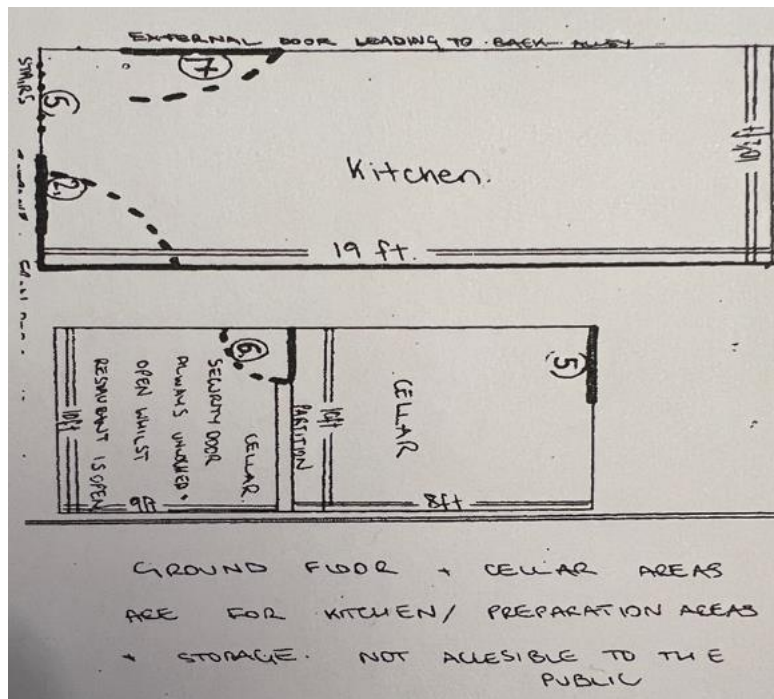 EXTERNAL DOOR LEADING TO BACK ALLEY
7
STAIRS
5
2
Kitchen.
19 ft.
6
5
CELLAR
PARTITION
10ft
CELLAR.
SECURITY DOOR
ALWAYS UNLOCKED +
OPEN WHILST
RESTAURANT IS OPEN
10ft
9ft
8ft
GROUND FLOOR + CELLAR AREAS
ARE FOR KITCHEN/ PREPARATION AREAS
+ STORAGE. NOT ACCESIBLE TO THE
PUBLIC